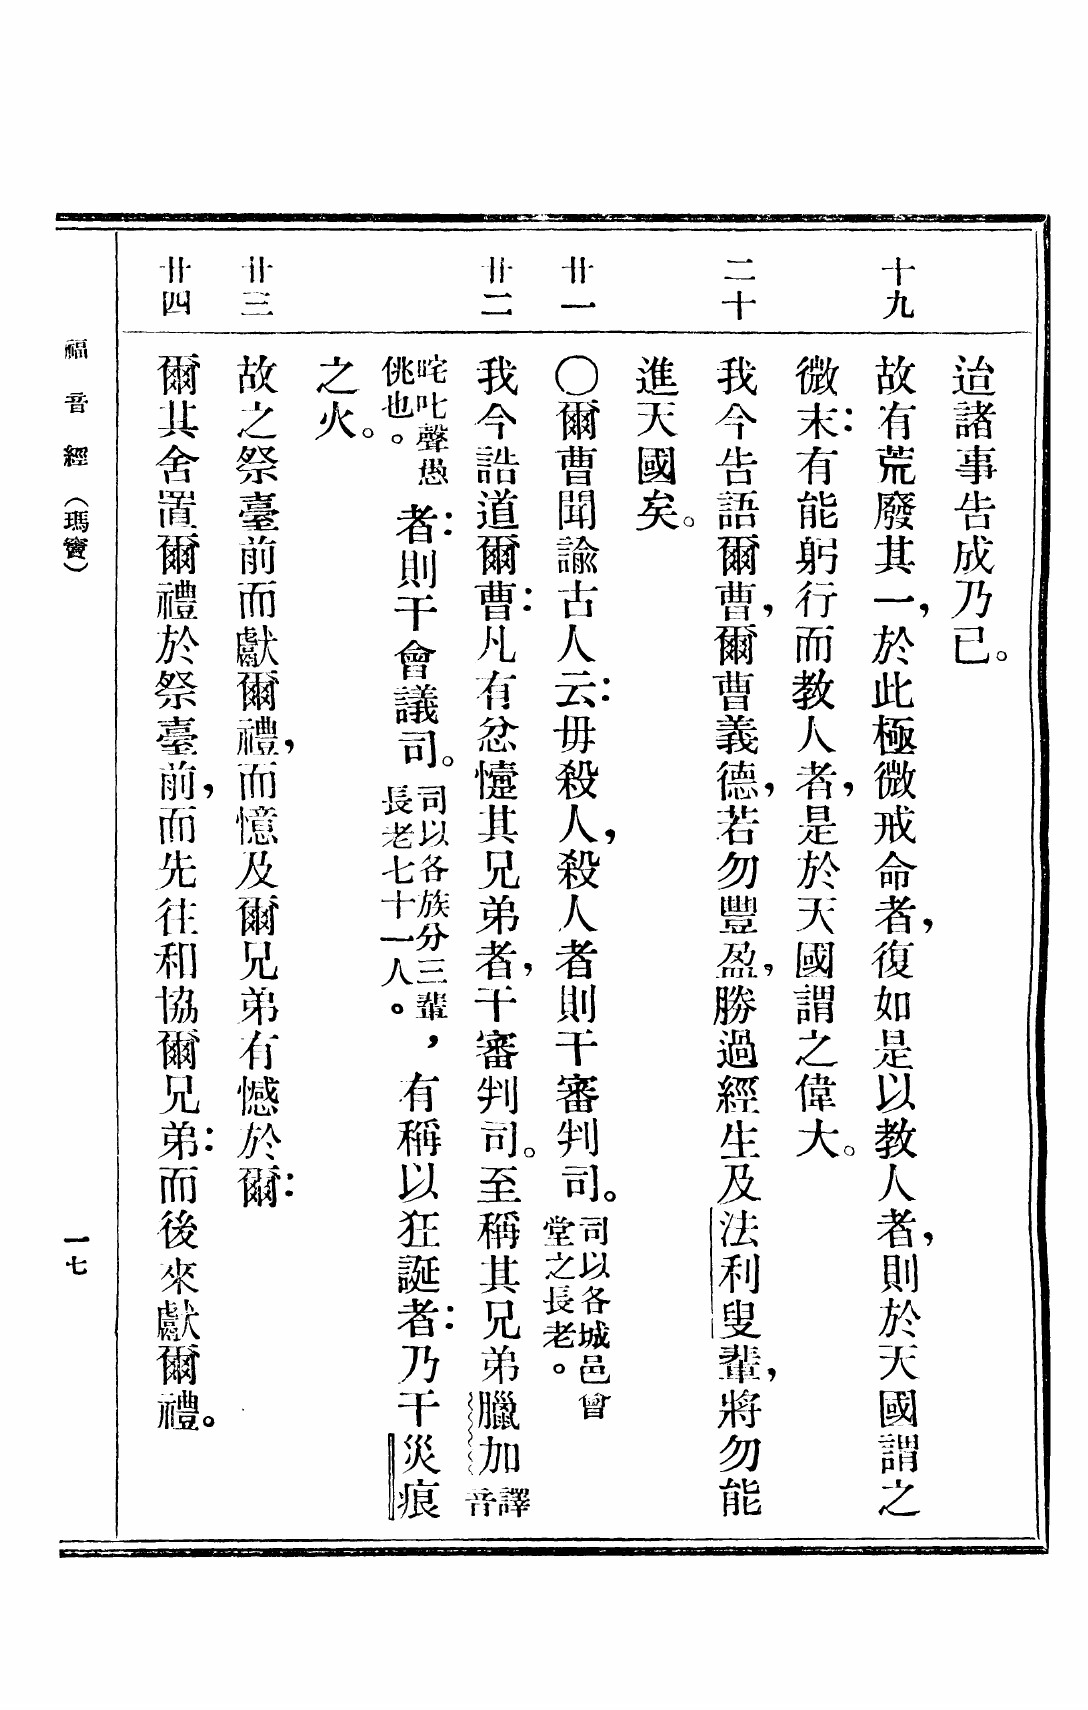 迨諸事告成乃已。
十九
故有荒廢其一,於此極微戒命者,復如是以教人者,則於天國謂之
微末:有能躬行而教人者,是於天國謂之偉大。
二十
我今告語爾曹,爾曹義德,若勿豐盈,勝過經生及法利叟輩,將勿能
進天國矣。
廿一
〇爾曹聞諭古人云:毋殺人,殺人者則干審判司。司以各城邑會堂之長老。
廿二
我今誥道爾曹:凡有忿懥其兄弟者,干審判司。至稱其兄弟臘加譯音
咤叱聲愚佻也。者:則干會議司。司以各族分三輩長老七十一人。,有稱以狂誕者:乃干災痕
之火。
廿三
故之祭臺前而獻爾禮,而憶及爾兄弟有憾於爾:
廿四
爾其舍置爾禮於祭臺前,而先往和協爾兄弟:而後來獻爾禮。
福音經(瑪竇)
一七